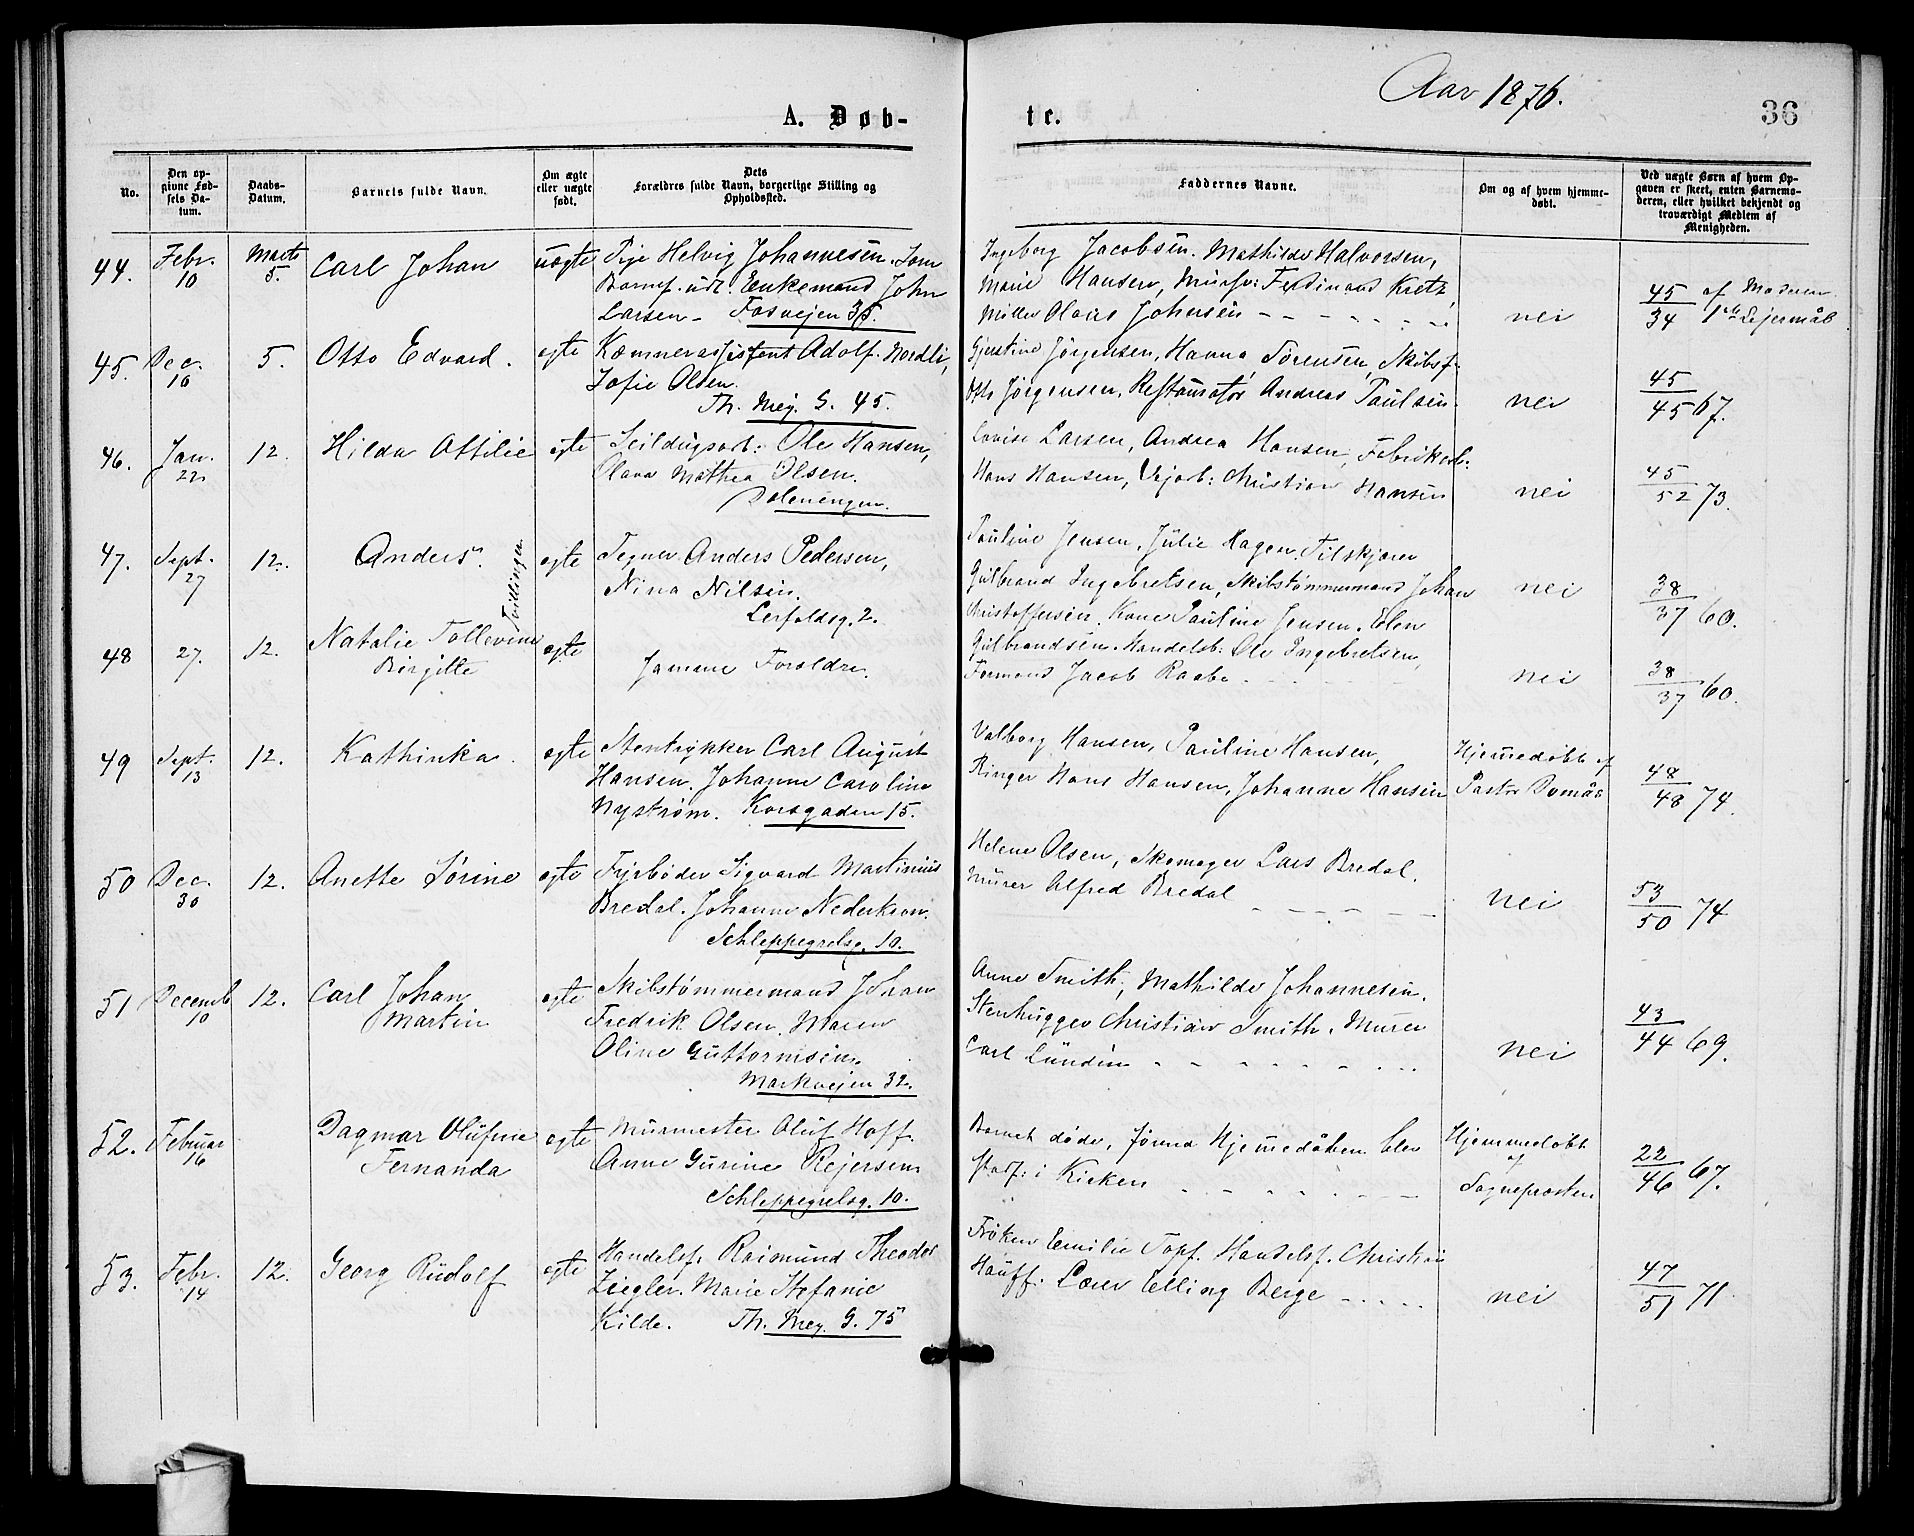 Aar 1876.
A. Døb-
te.
36
No.
Den op-
givne Fød-
sels Da-
tum.
Daabs-
Datum.
Barnets fulde Navn.
Om ægte
eller uægte
født.
Dets
Forældres fulde Navn, borgerlige Stilling og
Opholdssted.
Faddernes Navne.
Om og af hvem hjemme-
døbt.
Ved uægte Børn af hvem Op-
gaven er skeet, enten Barnemo-
deren, eller hvilket bekjendt og
troværdigt Medlem af
Menigheden.
44. Febr. 10 Marts 5. Carl Johan uægte
Pige Helvig Johannesen. Som
Barnef. udl. Enkemand John
Larsen - Fosvejen 35.
Ingeborg Jacobsen. Mathilde Halvorsen,
Marie Hansen, Mursv: Ferdinand Kretz,
Møller Olaus Johnsen
nei
45/34 af Moderen
1ste Lejermål
45. Dec. 10 5. Otto Edvard. ægte
Kæmnerassistent Adolf Nordli,
Sofie Olsen.
Th. Mey. G. 45.
Gjestine Jørgensen, Hanna Sørensen, Skibsf.
Otto Jørgensen, Restauratør Andreas Paulsen
nei
45/45 67.
46. Jan. 22 12. Hilda Ottilie ægte
Seildugsarb: Ole Hansen,
Olava Mathea Olsen.
Dæleningen.
Lovise Larsen, Andrea Hansen, Fabrikarb:
Hans Hansen, Vejarb: Christian Hansen
nei
45/52 73.
47. Sept. 27 12. Anders. ægte
Tvillinger
Tegner Anders Pedersen,
Nina Nilsen.
Lerfoldsg. 2.
Pauline Jensen, Julie Hagen, Tilskjærer
Gulbrand Ingebretsen, Skibstømmermand Johan
nei
38/37 60.
48 27. 12. Natalie Tollevine
Birgitte
ægte
Samme Forældre.
Christoffersen. Kone Pauline Jensen, Elen
Gulbrandsen. Handelsb. Ole Ingebretsen,
Formand Jacob Raabe
nei
38/37 60.
49 Sept. 13 12. Kathinka. ægte
Stentrykker Carl August
Hansen. Johanne Caroline
Nystrøm. Korsgaden 15.
Valborg Hansen, Pauline Hansen,
Ringer Hans Hansen, Johanne Hansen
Hjemmedøbt af
Pastor Domås
48/48 74.
50 Dec. 30 12. Anette Sørine ægte
Fyrbøder Sigvard Martinius
Bredal. Johanne Nederkson.
Schleppegrelsg. 10.
Helene Olsen, Skomager Lars Bredal.
Murer Alfred Bredal
nei
53/50 74
51 Decemb 10 12. Carl Johan
Martin
ægte
Skibstømmermand Johan
Fredrik Olsen. Maren
Oline Guttormsen.
Markvejen 32.
Anne Smith, Mathilde Johannesen.
Stenhugger Christian Smith. Murer
Carl Lundin
nei
43/44 69.
52. Februar 16 Dagmar Olufine
Fernanda
ægte
Murmester Oluf Hoff.
Anne Gurine Rejersen
Schleppegrelsg. 10.
Barnet døde, førend Hjemmedåben blev
stadf: i Kirken
Hjemmedøbt
af
Sognepresten.
22/46 67.
53. Febr. 14 12. Georg Rudolf ægte
Handelsf. Raimund Theodor
Ziegler. Marie Stefanie
Kilde. Th. Mey. G. 75
Frøken Emilie Topf. Handelsf. Christian
Hauff. Lærer Elling Berge
nei
47/51 71.